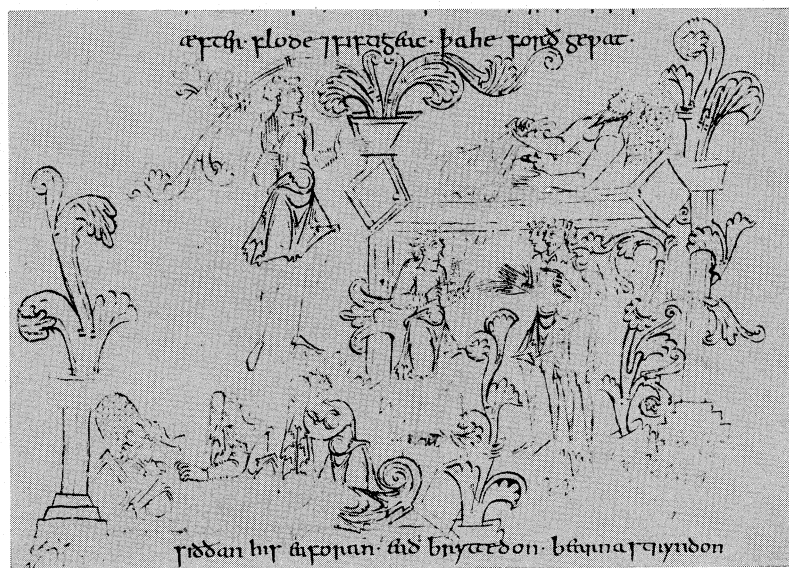 æfter· flode ⁊ fiftig eac · þa he forð geƿat ·
siððan his eaforan · ead bryttedon · bearna stryndon